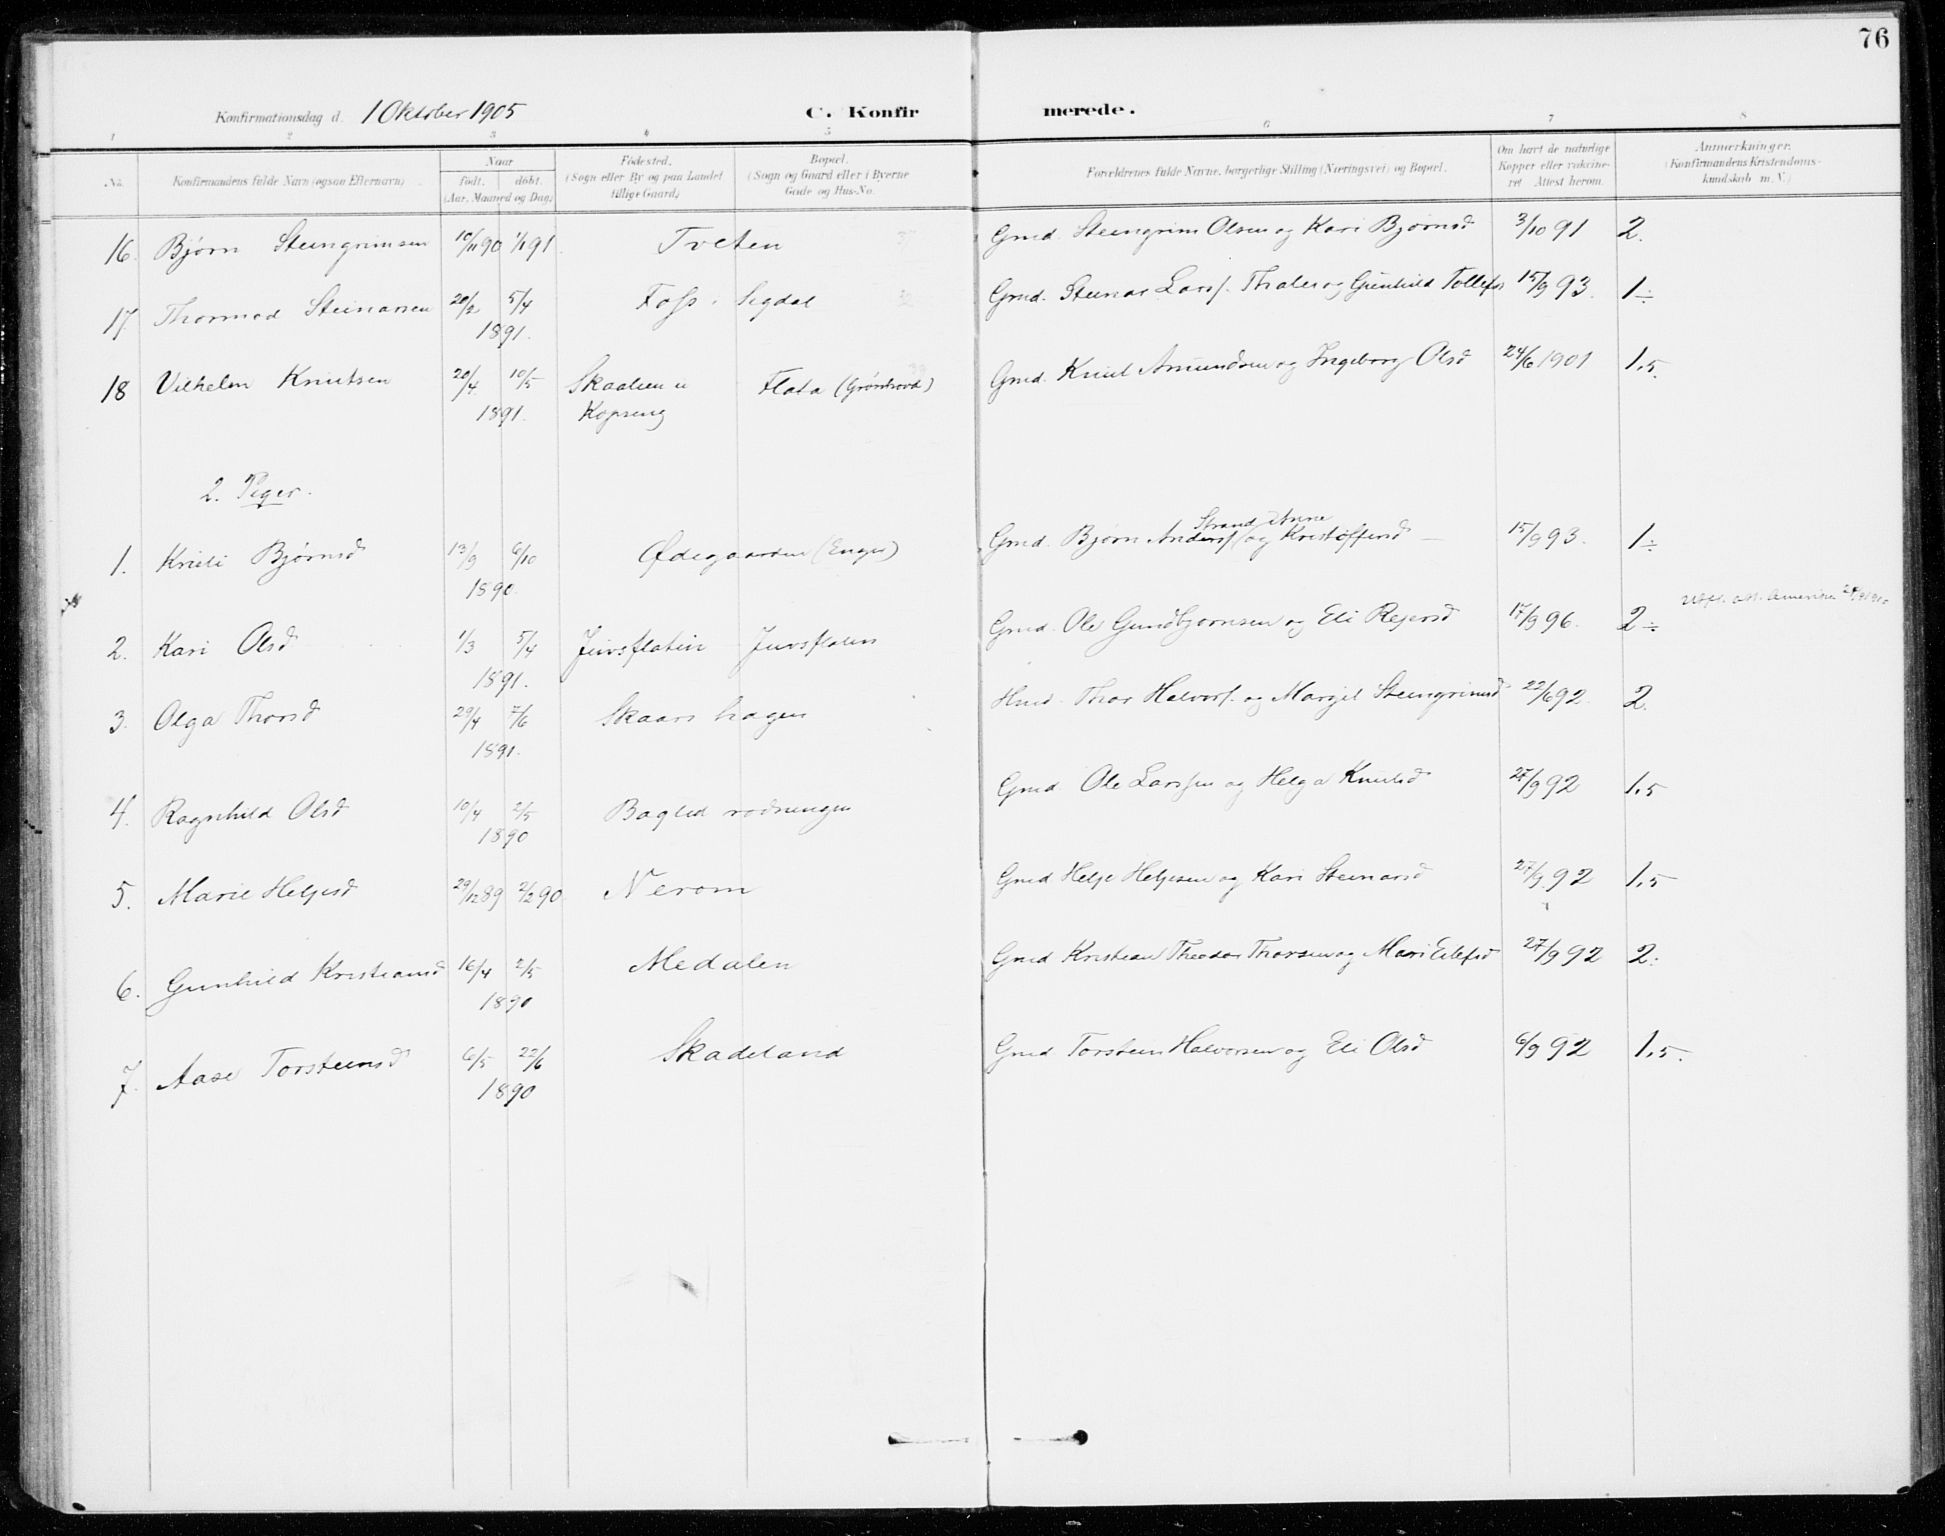 76
Konfirmationsdag d. 1 Oktober 1905 C. Konfirmerede.
1 2 3 4 5 6 7 8
No. Konfirmandens fulde Navn (ogsaa Efternavn) Naar født. døbt. (Aar, Maaned og Dag) Fødested. (Sogn eller By og paa Landet tillige Gaard) Bopæl. (Sogn og Gaard eller i Byerne Gade og Hus-No. Forældrenes fulde Navne, borgerlige Stilling (Næringsvei) og Bopæl. Om havt de naturlige Kopper eller vaccineret Attest herom. Anmærkninger. (Konfirmandens Kristendomskundskab m. V.)
16. Bjørn Steingrimsen 10/11 90 1/1 91 Tveten Gmd. Steingrim Olsen og Kari Bjørnsd 3/10 91 2.
17. Thormod Steinarsen 20/2 5/4 1891. Foss. Sigdal Gmd. Steinar Larsf. Thalerog Gunhild Tollefs 15/9 93. 1÷
18 Vilhelm Knutsen 20/4. 10/5 1891. Skaalien u Kopseng Flata (Grønhovd) Gmd. Knut Amundsen og Ingeborg Olsd 24/6 1901 1.5.
2. Piger.
1. Kristi Bjørnsd 13/9 6/10 1890. Ødegaarden (Enger) Gmd. Bjørn Andersf Strand og Anne Kristoffersd 15/9 93. 1÷
2. Kari Olsd 1/3 5/4 1891. Juvsflatin Juvsflaten Gmd. Ole Gundbjørnsen og Eli Reiersd 17/9 96. 2÷ Utfl. att. Amerika
3. Olga Thorsd 29/4 7/6 1891. Skaars hagen Hmd. Thor Halvorf. og Margit Steingrimsd 22/6 92. 2.
4. Ragnhild Olsd 10/4 2/5 1890 Baglid rødningen Gmd Ole Larssen og Helga Knutsd 27/9 92 1.5
5. Marie Helgesd 29/12 89 2/2 90. Nerom Gmd Helge Helgesen og Kari Steinarsd 27/9 92 1.5
6. Gunhild Kristiansd 16/4 2/5 1890 Medalen Gmd Kristian Theodor Thorsen og Mari Eilefsd 27/9 92 2.
7. Aase Torsteinsd 6/5 22/6 1890 Skadeland Gmd Torstein Halvorsen og Eli Olsd 6/9 92 1.5.